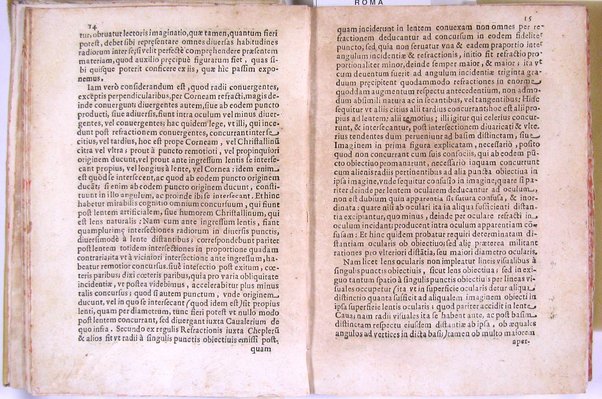 ROMA
14
tur, obruatur lectoris imaginatio, quæ tamen, quantum fieri
potest, debet sibi repræsentare omnes diuersas habitudines
radiorum intersese, si velit perfectè comprehendere præsentem
materiam, quod auxilio præcipuè figurarum fiet, quas si-
bi quisque poterit conficere ex iis, quæ hic passim expo-
nemus.
Iam verò considerandum est, quod radii conuergentes,
exceptis perpendicularibus, per Corneam refracti, magis de-
inde conuerguntur diuergentes autem, siue ab eodem puncto
producti, siue aduersi, fiunt intra oculum vel minus diuer-
gentes, vel conuergentes; hac quidem lege, vt illi, qui inci-
dunt post refractionem conuergentes, concurrant inter se
citius, vel tardius, hoc est prope Corneam, vel Christallinũ
citra vel vltra; prout à puncto remotiori, vel propinquiori
originem ducunt, vel prout ante ingressum lentis se interse-
cant propius, vel longius à lente, vel Cornea; idem enim
est quòd se intersecent, ac quod ab eodem puncto originem
ducãt si enim ab eodem puncto originem ducunt, consti-
tuunt in illo angulum, ac proinde ibi se intersecant. Ethinc
habetur mirabilis cognitio omnium concursuum, qui fiunt
post lentem artificialem, siue humorem Christallinum, qui
est lens naturalis: Nam cum ante ingressum lentis, fiant
quamplurimę intersectiones radiorum in diuersis punctis,
diuersimodè à lente distantibus; correspondebunt pariter
post lentem totidem intersectiones in proportione quadam
contrariata vt à viciniori intersectione ante ingressum, ha-
beatur remotior concursus, siue intersectio post exitum, cœ-
teris paribus; dixi cœteris paribus, quia pro varia obliquitate
incidentiæ, vt postea videbimus, accelerabitur plus minus
talis concursus; quod si autem punctum, vnde originem
ducunt, vel in quo se intersecant (quod idem est) sit propius
lenti, quam per diametrum, tunc fieri potest vt nullo modo
post lentem concurrant, sed diuergant iuxta Caualerium de
quo infra. Secundo ex regulis Refractionis iuxta Cheplerũ
& alios fit vt radii à singulis punctis obiectiuis emissi post,
quam
15
quam inciderunt in lentem conuexam non omnes per re-
fractionem deducantur ad concursum in eodem fideliter
puncto, sed quia non seruatur vna & eadem proportio inter
angulum incidentiæ & refractionis, initio fit refractio pro-
portionaliter minor, deinde semper maior, & maior, ita vt
cum deuentum fuerit ad angulum incidentiæ triginta gra-
duum præcipitent quodammodo refractiones in enorme
quoddam augmentum respectu antecedentium, non admo-
dum absimili natura ac in secantibus, vel tangentibus; Hinc
sequitur vt aliis citius alii tardius concurrant hoc est alii pro-
pius ad lentem alii remotius; illi igitur qui celerius concur-
runt, & intersecantur, post intersectionem diuaricati & vlte-
rius tendentes dum perueniunt ad basim distinctam, siue
Imaginem in prima figura explicatam, necessariò, posito
quod non concurrant cum suis consociis, qui ab eodem pũ-
cto obiectiuo promanarunt, necessariò inquam concurrunt
cum alienis radiis pertinentibus ad alia puncta obiectiua in
ipsa imagine, vnde sequitur confusio in imagine; quare si pari-
ter deinde per lentem ocularem deducantur ad oculum,
non est dubium quin apparentia sit satura confusa, & inor-
dinata; quare alii ab oculari ita in aliqua sufficienti distan-
tia excipiuntur, quo minus, deinde per oculare refracti in
oculum incidant; producent intra oculum apparentiam cõ-
fusam: Et hinc quidem probatur requiri determinatam di-
stantiam ocularis ab obiectiuo: sed alię præterea militant
rationes pro vlteriori distãtia, seu maiori diametro ocularis.
Nam licet lens ocularis non impleatur lineis visualibus à
singulis punctis obiectiuis, sicut lens obiectiua; sed in exi-
guo tantum spatio à singulis punctis obiectiuis per lineas vi-
suales occupetur (sita vt in superficie ocularis detur aliqua
distinctio quanta sufficit ad aliqualem imaginem obiecti in
ipsa superficie lentis ocularis quod pariter accidit in lente
Caua; nam radii visuales ita se habent ante, ac post basim
distinctam respectu eiusdem distantiæ ab ipsa, ob æquales
angulos ad vertices in dicta basi) tamen ob multo maiorem
aper-